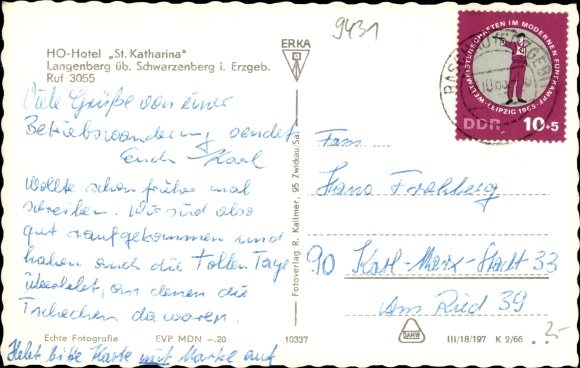 9431
HO-Hotel „St. Katharina"
Langenberg üb. Schwarzenberg i. Erzgeb.
Ruf 3055
ERKA
WELTMEISTERSCHAFTEN IM MODERNEN FÜNFKAMPF
LEIPZIG 1965
DDR 10+5
Viele Grüße von einer
Betriebswanderung sendet
Euch Karl
Wollte schon früher mal
schreiben. Wir sind also
gut raufgekommen und
haben auch die tollen Tage
überlebt, an denen die
Tschechen da waren.
Hebt bitte Karte mit Marke auf
Fotoverlag R. Kallmer, 95 Zwickau/Sa.
Fam.
Hans Frohberg
90 Karl-Marx-Stadt 33
Am Ried 39
Echte Fotografie EVP MDN -.20 10337
DAHW
III/18/197 K 2/66
2-